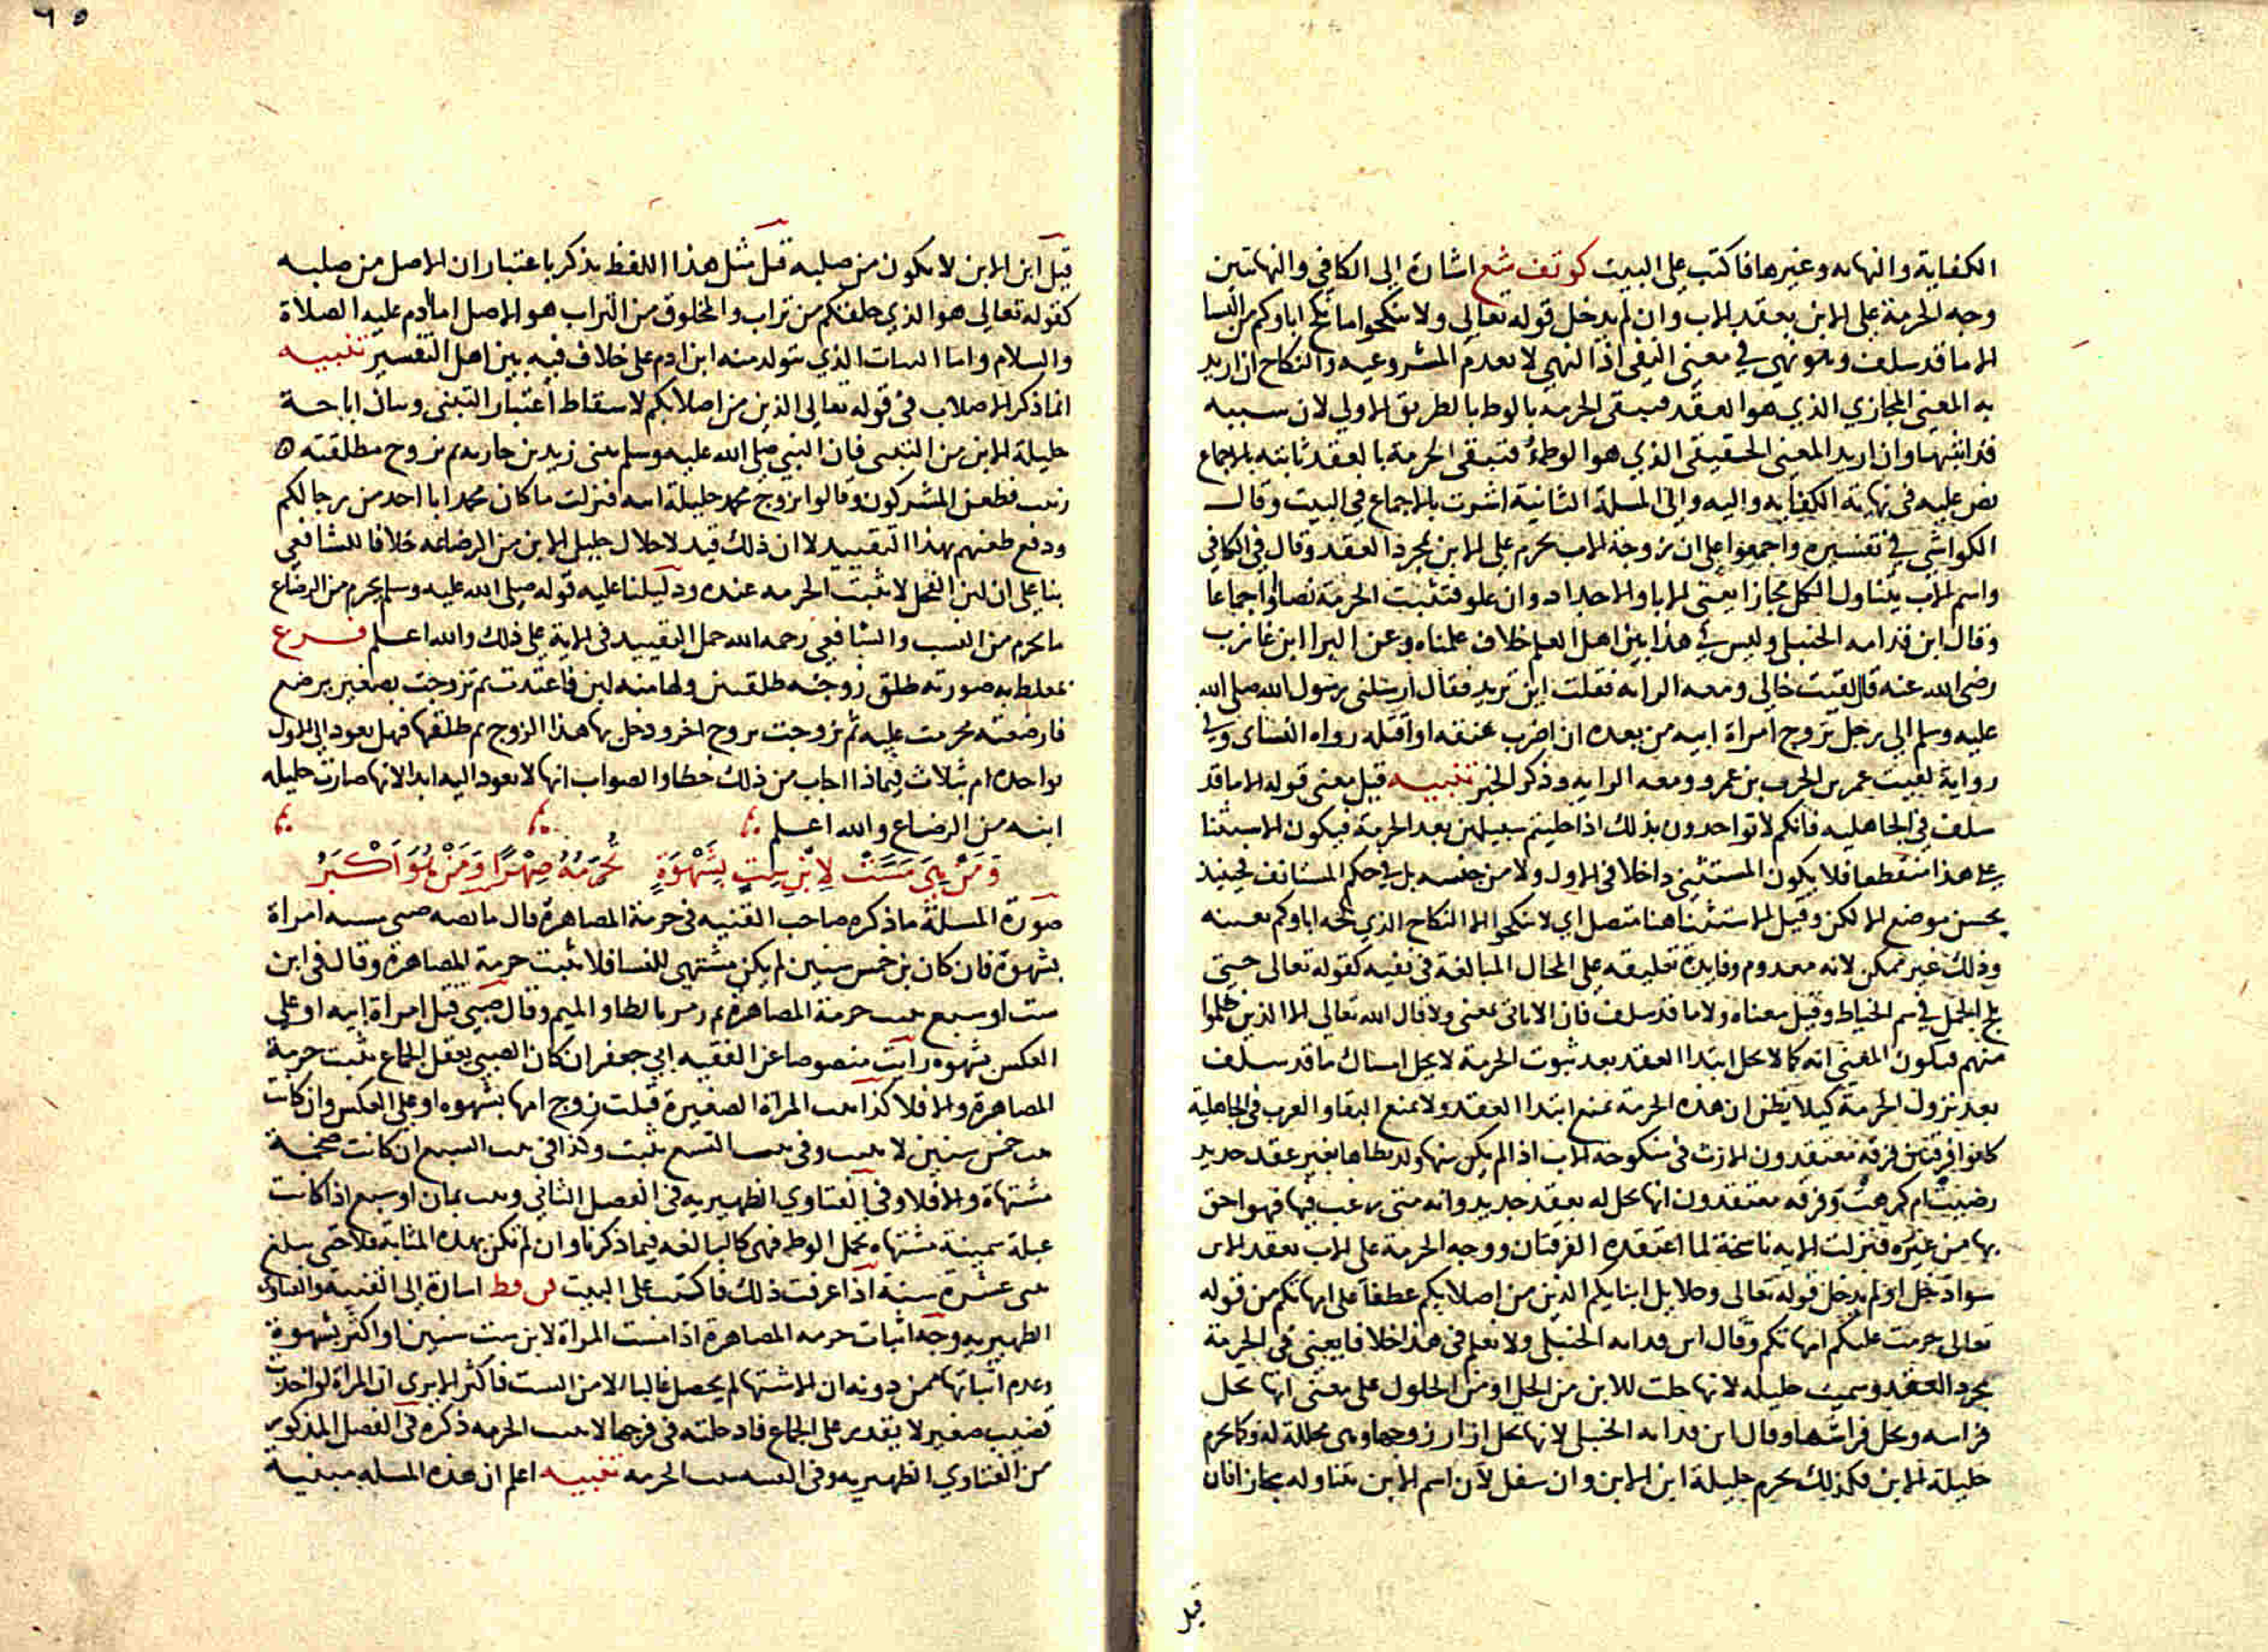 الكفاية والنهايه وغيرها فاكتب على البيت كو تف شع اشارة الى الكافي والنهايتين
وجه الحرمة على الابن بعقد الاب وان لم يدخل قوله تعالى ولا تنكحوا ما نكح اباوكم من النسا
الا ما قد سلف وهو نهي في معنى النفي اذ النهي لا يعدم المشروعيه والنكاح ان اريد
به المعنى المجازي الذي هو العقد فيبقى الحرمة بالوطء بالطريق الاولى لان سببه
وان اريد المعنى الحقيقي الذي هو الوطء فتبقى الحرمة بالعقد ثابته بالاجماع
نص عليه في نهاية الكفايه واليه والى المسلة الثانية اشرت بالاجماع في البيت وقال
الكواشي في تفسيره واجمعوا على ان زوجة الاب يحرم على الابن بمجرد العقد وقال في الكافي
واسم الاب يتناول الكل مجازا يعني الابا والاجداد وان علو فتثبت الحرمة نصا واجماعا
وقال ابن قدامه الحنبلي وليس في هذا بين اهل العلم خلاف علمناه وعن البرا ابن عازب
رضى الله عنه قال لقيت خالي ومعه الرايه فقلت اين تريد فقال ارسلني رسول الله صلى الله
عليه وسلم الى رجل تزوج امراة ابيه من بعده ان اضرب عنقه او اقتله رواه النساى وفي
رواية لقيت عمي الحرث بن عمرو ومعه الرايه وذكر الخبر تنبيه قيل معنى قوله الا ما قد
سلف في الجاهليه فانكم لا تواخدون بذلك اذا خليتم سبيلهن بعد الحرمة فيكون الاستثنا
على هذا منقطعا فلا يكون المستثنى داخلا في الاول ولا من جنسه بل في حكم المستانف فحينيذ
يحسن موضع الا لكن وقيل الاستثنا هنا متصل اي لا تنكحوا الا النكاح الذي نكحه اباوكم بعينه
وذلك غير ممكن لانه معدوم وفايدة تعليقه على المحال المبالغة في نفيه كقوله تعالى حتى
يلج الجمل في سم الخياط وقيل معناه ولا ما قد سلف فان الا ياتي بمعنى ولا قال الله تعالى الا الذين ظلموا
منهم فيكون المعنى انه كما لا يحل ابتدا العقد بعد ثبوت الحرمة لا يحل امساك ما قد سلف
بعد نزول الحرمة كيلا يظن ان هذه الحرمة تمنع ابتدا العقد ولا تمنع البقا والعرب في الجاهلية
كانوا فرقتين فرقه تعتقدون الارث في منكوحه الاب اذا لم يكن منها ولد يطاها بغير عقد جديد
رضيت ام كرهت وفرقه معتقدون انها تحل له بعقد جديد وانه متى رغب فيها فهو احق
بها من غيره فنزلت الايه ناسخة لما اعتقده الفرقتان ووجه الحرمة على الاب بعقد الابن
سوا دخل او لم يدخل قوله تعالى وحلايل ابنايكم الذين من اصلابكم عطفا على امهاتكم من قوله
تعالى حرمت عليكم امهاتكم وقال ابن قدامه الحنبلي ولا نعلم في هذا خلافا يعني في الحرمة
بمجرد العقد وسميت حليله لانها حلت للابن من الحل او من الحلول على معنى انها تحل
فراشه ويحل فراشها وقال ابن قدامه الحنبلي لانها تحل ازار زوجها وهى محللة له وكما يحرم
حليلة الابن فكذلك يحرم حليلة ابن الابن وان سفل لان اسم الابن يتناوله مجازا فان
قيل
قيل ابن الابن لا يكون من صلبه قيل مثل هذا اللفظ يذكر باعتبار ان الاصل من صلبه
كقوله تعالى هو الذي خلقكم من تراب والمخلوق من التراب هو الاصل اما ادم عليه الصلاة
والسلام واما النبات الذي يتولد منه ابن ادم على خلاف فيه بين اهل التفسير تنبيه
انما ذكر الاصلاب في قوله تعالى الذين من اصلابكم لاسقاط اعتبار التبني وبيان اباحة
حليلة الابن من التبنى فان النبي صلى الله عليه وسلم تبنى زيد بن حارثه ثم تزوج مطلقته
زينب فطعن المشركون وقالوا تزوج محمد حليلة ابنه فنزلت ما كان محمد ابا احد من رجالكم
ودفع طعنهم بهذا التقييد لا ان ذلك قيد لاحلال حليل الابن من الرضاعه خلافا للشافعي
بنا على ان لبن الفحل لا يثبت الحرمه عنده ودليلنا عليه قوله صلى الله عليه وسلم يحرم من الرضاع
ما يحرم من النسب والشافعي رحمه الله حمل التقييد في الاية على ذلك والله اعلم فرع
يغلط به صورته طلق زوجته طلقتين ولها منه لبن فاعتدت ثم تزوجت بصغير يرضع
فارضعته فحرمت عليه ثم تزوجت بزوج اخر ودخل بها هذا الزوج ثم طلقها فهل يعود الى الاول
بواحده ام بثلاث فبماذا اجاب من ذلك خطا والصواب انها لا يعود اليه ابدا لانها صارت حليله
ابنه من الرضاع والله اعلم
وَمَنْ هِيَ مَسَّتْ لِابْنِ سِتٍّ بِشَهْوَةٍ تُحَرِّمُهُ صِهْرًا وَمَنْ هُوَ اَكْبَرُ
صورة المسلة ما ذكره صاحب القنيه في حرمة المصاهرة قال ما نصه صبي مسته امراة
بشهوة فان كان بن خمس سنين لم يكن مشتهي للنسا فلا يثبت حرمة المصاهرة وقال في ابن
ست او سبع يثبت حرمة المصاهرة ثم رمز بالظا والميم وقال صبي قبل امراة ابيه او على
العكس بشهوه رايت منصوصا عن الفقيه ابي جعفر ان كان الصبي يعقل الجماع يثبت حرمة
المصاهرة والا فلا كذا بنت المراة الصغيرة قبلت زوج امها بشهوه او على العكس وان كانت
بنت خمس سنين لا يثبت وفى بنت التسع يثبت وكذا في بنت السبع ان كانت ضخمة
مشتهاة والا فلا وفي الفتاوي الظهيريه في الفصل الثاني وبنت ثمان او سبع اذا كانت
عبلة سمينة مشتهاه تحمل الوطء فهى كالبالغه فيما ذكرنا وان لم تكن بهذه المثابة فلا حتى يبلغ
ثنتى عشرة سنة اذا عرفت ذلك فاكتب على البيت قن فظ اشارة الى القنية والفتاوى
الظهيريه وجه اثبات حرمه المصاهرة اذا مست المراة لابن ست سنين او اكثر بشهوة
وعدم اثباتها ممن دونه ان الاشتها لم يحصل غالبا الا من الست فاكثر الا يرى ان المراة لو اخذت
قضيب صغير لا يقدر على الجماع فادخلته في فرجها لا يثبت الحرمه ذكره في الفصل المذكور
من الفتاوي الظهيريه وفى يثبت الحرمه تنبيه اعلم ان هذه المسله مبنية